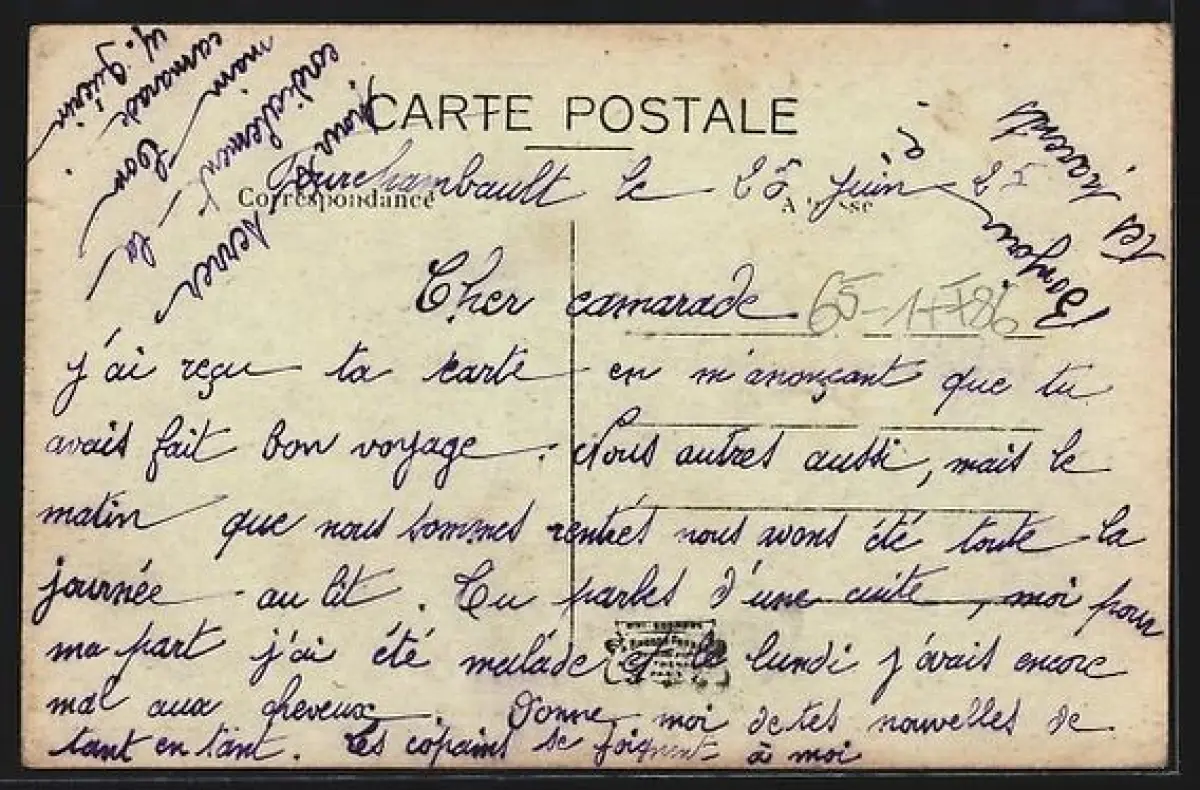 CARTE POSTALE
Correspondance
Fourchambault le 25 juin 25
Cher camarade
65-1
j'ai reçu ta carte en m'anonçant que tu
avais fait bon voyage. Nous autres aussi, mais le
matin que nous sommes rentrés nous avons été toute la
journée au lit. Tu parles d'une cuite, moi pour
ma part j'ai été malade et le lundi j'avais encore
mal aux cheveux. Donne moi de tes nouvelles de
tant en tant. Les copains se joignent à moi
pour te serrer
cordialement la
main ton
camarade
Bonjour à
tes parents